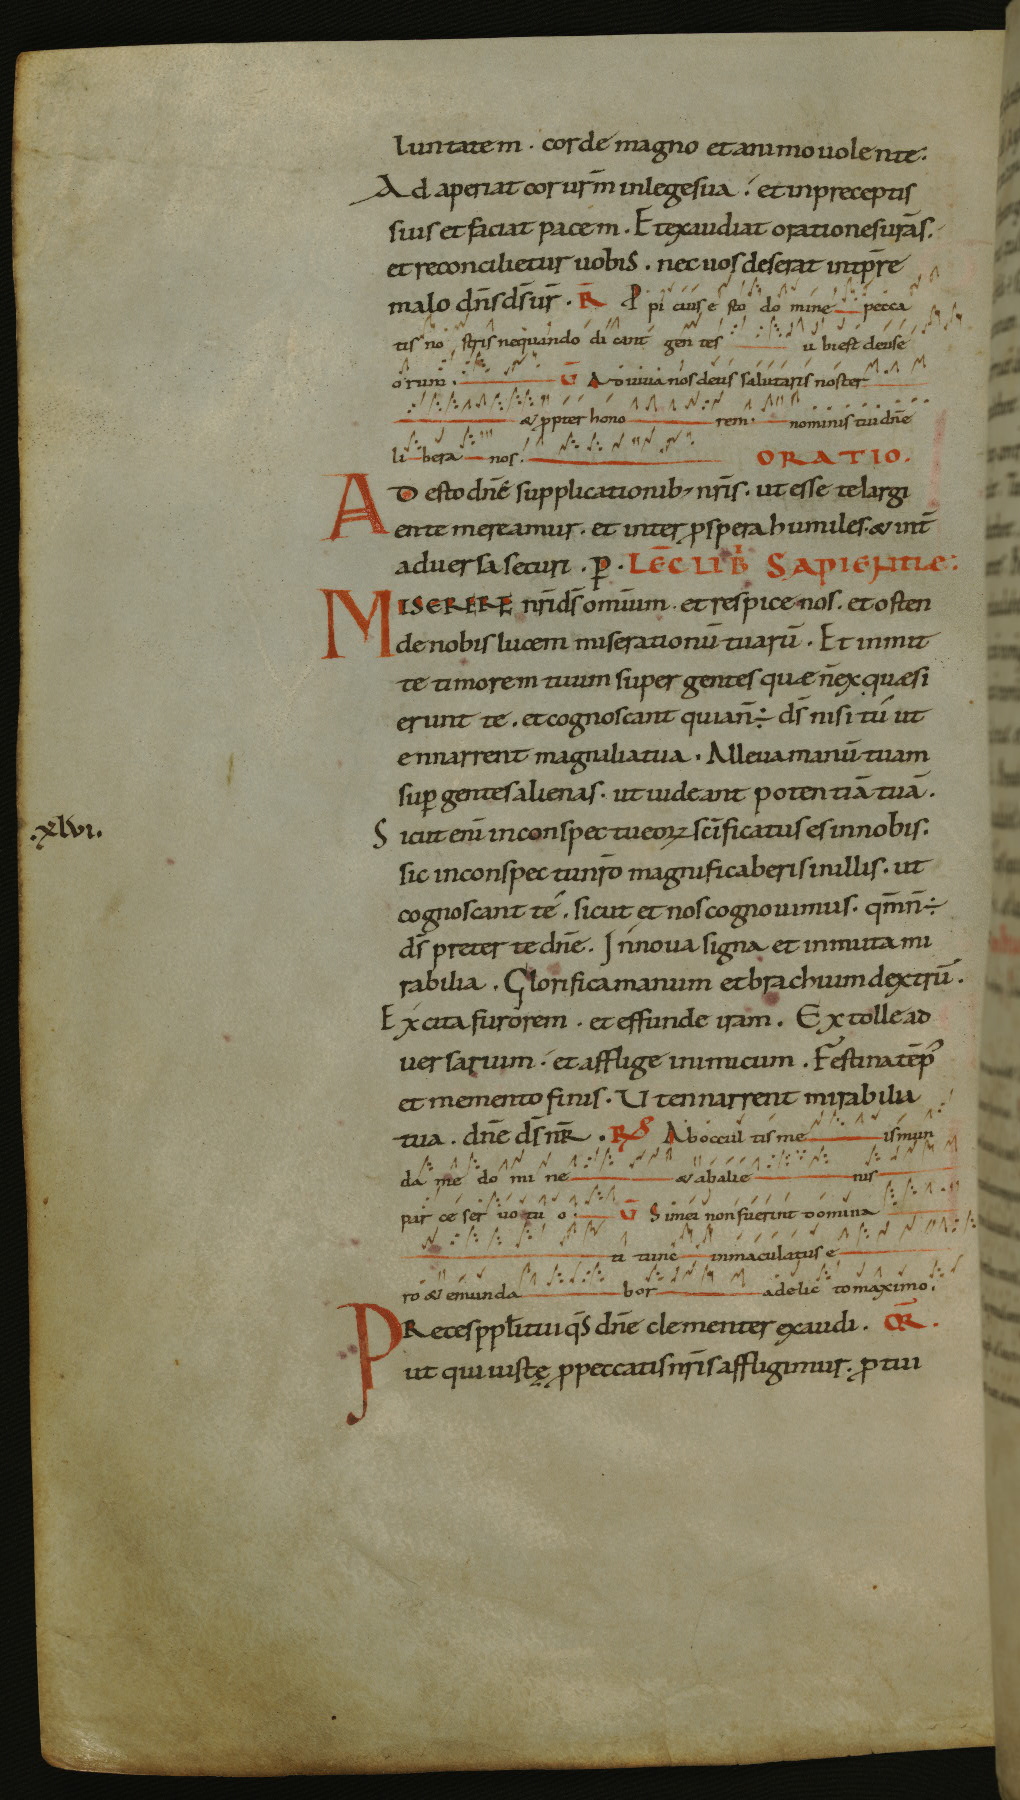 luntatem . corde magno et animo uolente.
Ad aperiat cor urm̄ in lege sua . et in preceptis
suis et faciat pacem . Et exaudiat orationes urās.
et reconcilietur uobis . nec uos deserat in tp̄re
malo dn̄s ds̄ ur̄ . R̄ Ppi cius e sto do mine pecca
tis no stris nequando di cant gen tes u bi est deus e
orum . V̄ Adiuua nos deus salutaris noster
& ꝓpter hono rem . nominis tui dn̄e
li bera nos . ORATIO.
Ad esto dn̄e supplicationib; nr̄is . ut esse te largi
ente mereamur . et inter ꝓspera humiles . & int̄
aduersa securi . ꝑ . LEC̄ LIB̄ SAPIENTIE:
MISERERE nr̄i ds̄ omium . et respice nos . et osten
de nobis lucem miserationū tuarū . Et inmit
te timorem tuum super gentes quæ n̄ exquæsi
erunt te . et cognoscant quia n̄ ÷ ds̄ nisi tu ut
ennarrent magnalia tua . Alleua manū tuam
suꝑ gentes alienas . ut uideant potentiā tuā .
.xlvi.
Sicut enī in conspectu eoꝝ sc̄ificatus es in nobis.
sic in conspectu nr̄o magnificaberis in illis . ut
cognoscant te . sicut et nos cognouimus . qm̄ n̄ ÷
ds̄ preter te dn̄e . Innoua signa et inmuta mi
rabilia . Glorifica manum et brachium dextrū .
Excita furorem . et effunde iram . Extolle ad
uersarium . et afflige inimicum . Festina tēp
et memento finis . Ut ennarrent mirabilia
tua . dn̄e ds̄ nr̄ . Ab occul tis me is mun
da me do mi ne & ab alie nis
par ce ser uo tu o . V̄ Si mei non fuerint domina
ti tunc inmaculatus e
ro & emunda bor a delic to maximo .
Preces ppl̄i tui qs̄ dn̄e clementer exaudi . OR̄ .
ut qui iustę ꝓ peccatis nr̄is affligimur . ꝓ tui